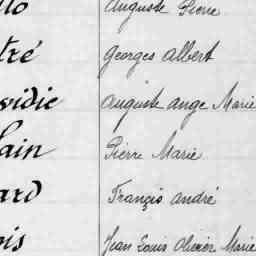 llo Auguste Pierre
tré Georges Albert
vidic Auguste Ange Marie
lain Pierre Marie
ard François André
ois Jean Louis Olivier Marie